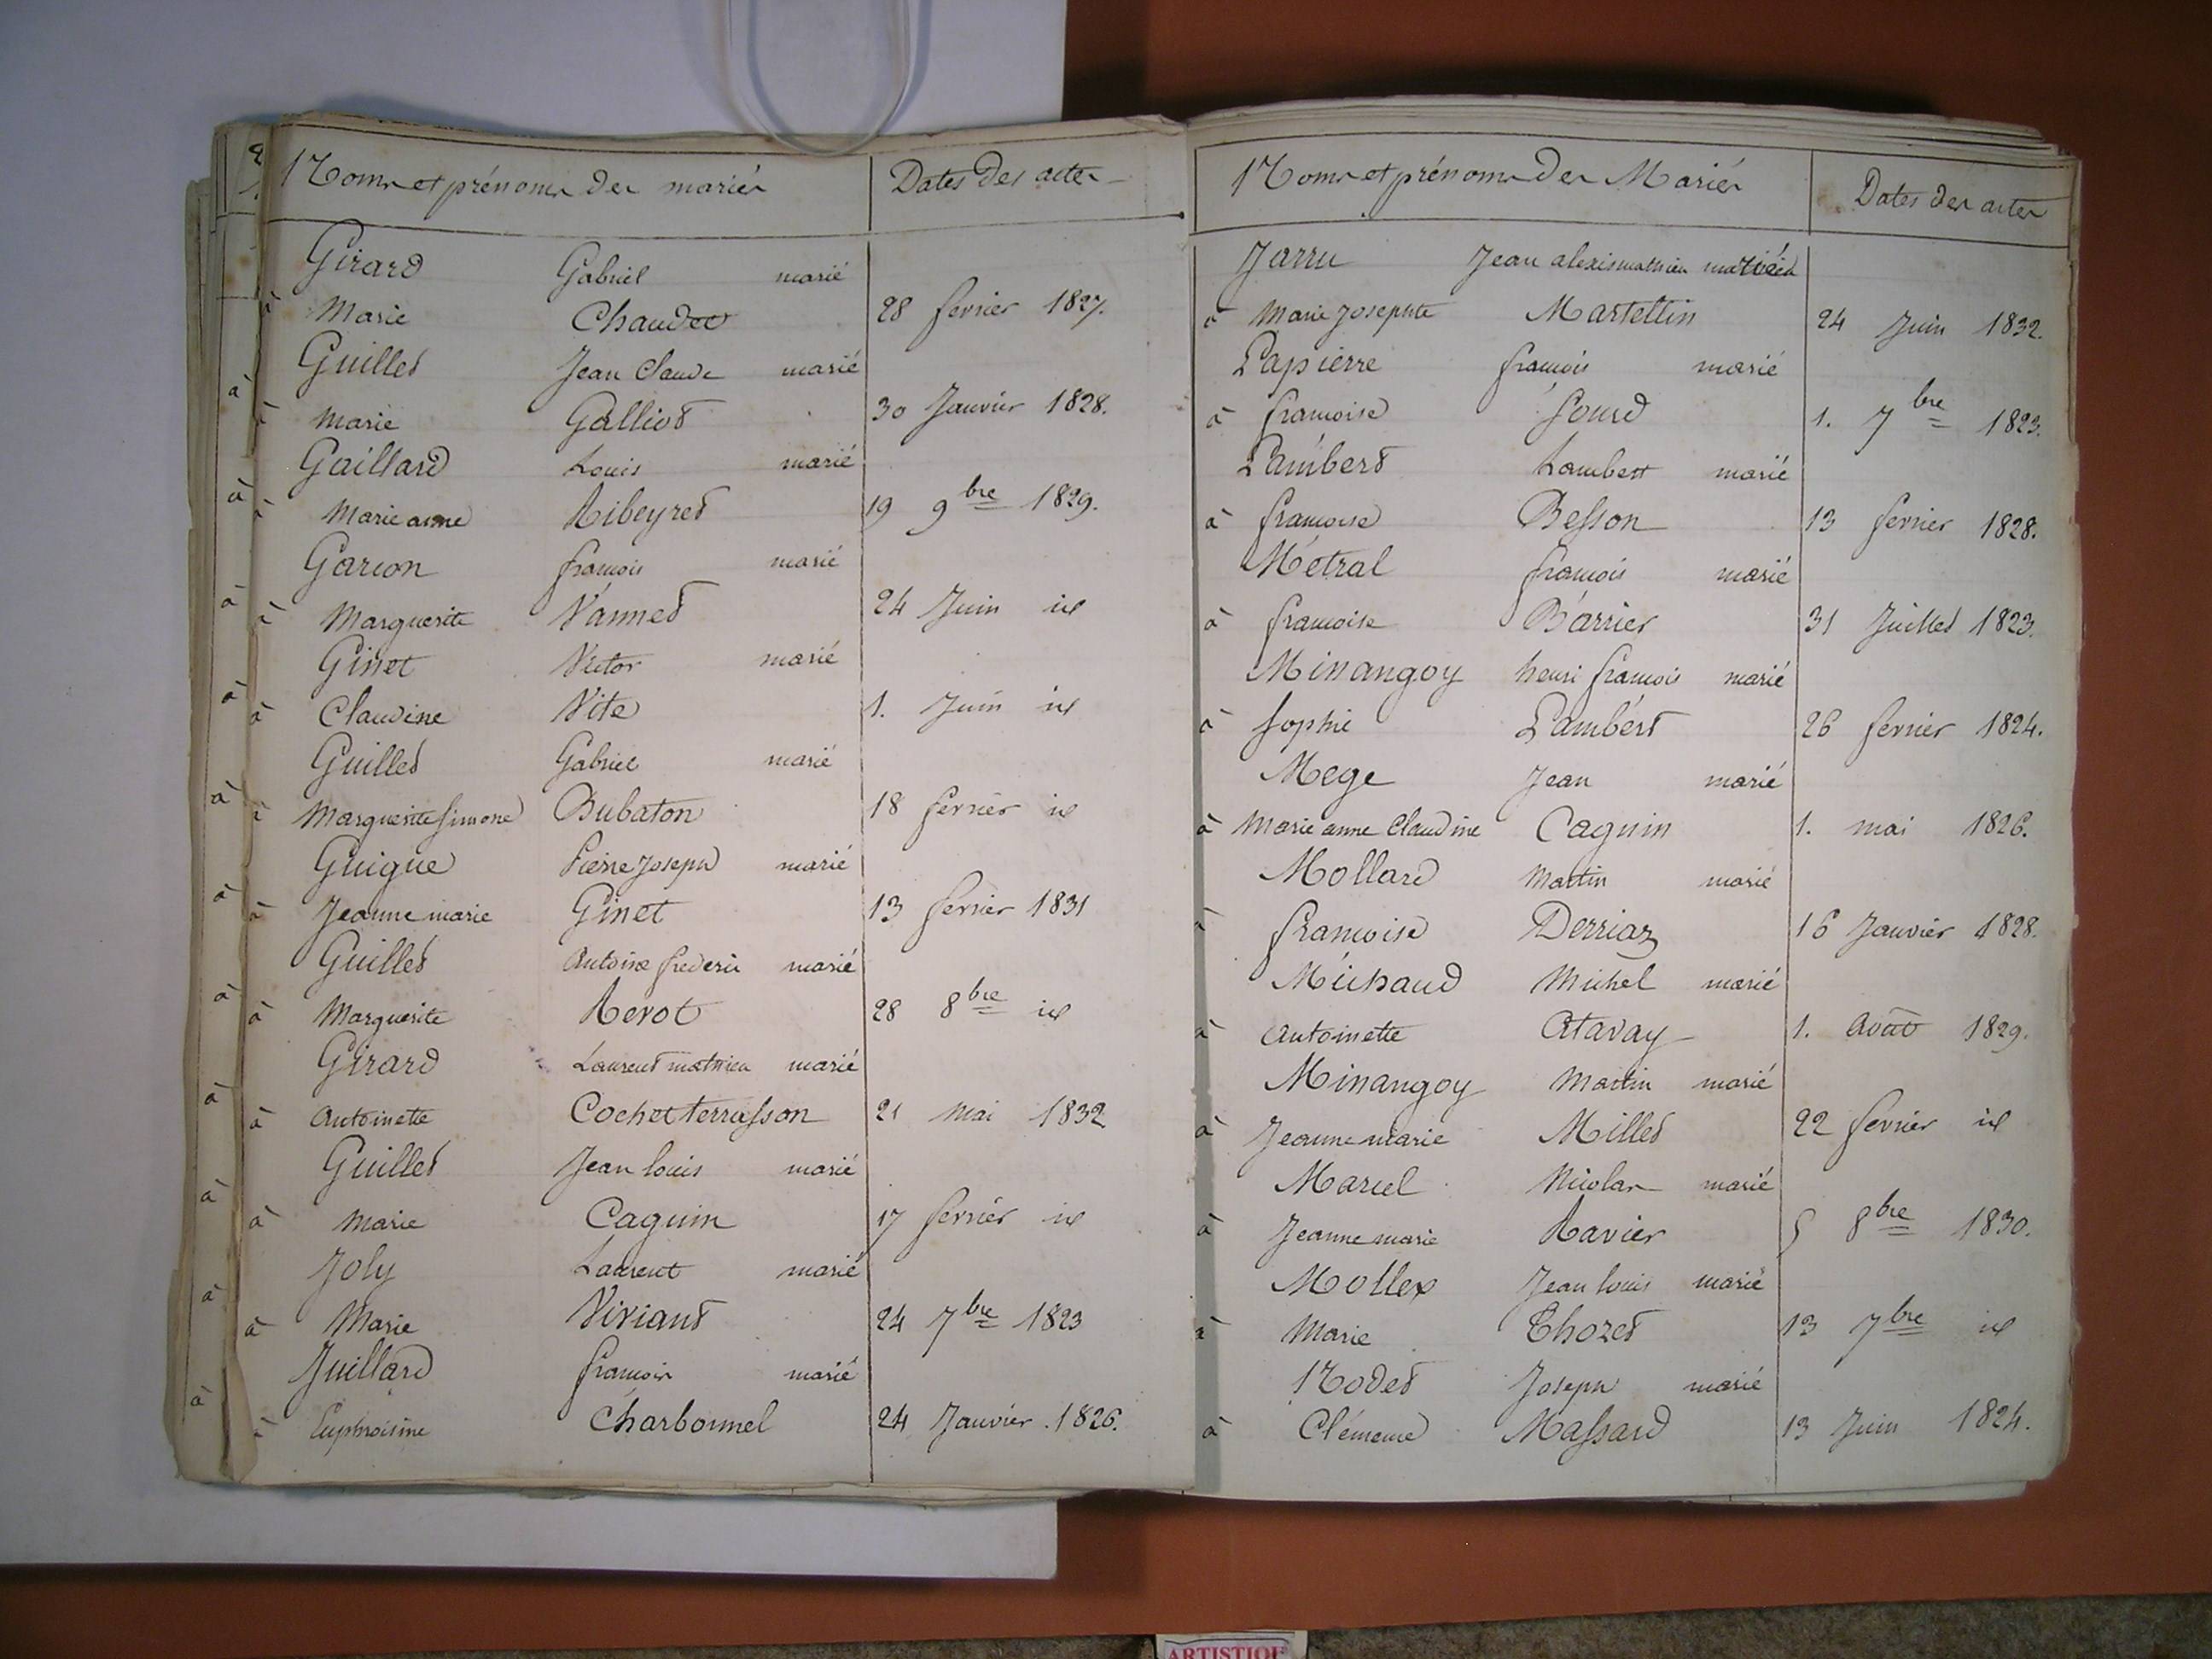 Noms et prénoms des mariés Dates des actes
Girard Gabriel marié
à Marie Chaudet 28 fevrier 1827.
Guillet Jean Claude marié
à Marie Galliot 30 Janvier 1828.
Gaillard Louis marié
à Marie anne Ribeyret 19 9bre 1829.
Garion françois marié
à Marguerite Vannet 24 Juin id
Ginet Victor marié
à Claudine Vite 1. Juin id
Guillet Gabriel marié
à Marguerite Simone Bubaton 18 fevrier id
Guigue Pierre Joseph marié
à Jeanne marie Ginet 13 fevrier 1831
Guillet Antoine frederic marié
à Marguerite Revot 28 8bre id
Girard Laurent mathieu marié
à Antoinette Cochet terrasson 21 Mai 1832
Guillet Jean louis marié
à Marie Caguin 17 fevrier id
Joly Laurent marié
à Marie Viviant 24 7bre 1823
Juillard françois marié
à Euphroisine Charbonnel 24 Janvier 1826.
Noms et prénoms des Mariés Dates des actes
Jarru Jean alexis mathieu marié
à Marie Josephte Martettin 24 Juin 1832.
Lapierre françois marié
à françoise Sourd 1. 7bre 1823.
Lambert Lambert marié
à françoise Besson 13 fevrier 1828.
Métral françois marié
à françoise Barrier 31 Juillet 1823.
Minangoy henri françois marié
à Sophie Lambert 26 fevrier 1824.
Mege Jean marié
à Marie anne Claudine Caguin 1. mai 1826.
Mollard Martin marié
à françoise Derriaz 16 Janvier 1828.
Michaud Michel marié
à Antoinette Atavay 1. Août 1829.
Minangoy Martin marié
à Jeanne marie Millet 22 fevrier id
Marcel Nicolas marié
à Jeanne marie Ravier 5 8bre 1830.
Mollex Jean louis marié
à Marie Thozet 13 7bre id
Nodet Joseph marié
à Clémence Massard 13 Juin 1824.
à
à
à
à
à
à
à
à
à
à
à
ARTISTIQUE